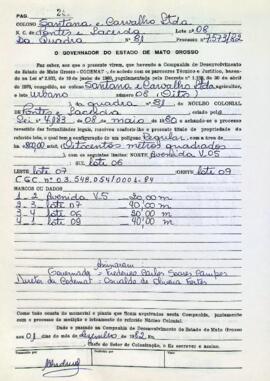 PAG. 2
COLONO Santana e Carvalho Ltda
N. C. de Pontes e Lacerda Lote n.o 08
Da Quadra nº 81 Processo n.o 7.573/82
O GOVERNADOR DO ESTADO DE MATO GROSSO
Faz saber, aos que o presente virem, que havendo a Companhia de Desenvolvimento
do Estado de Mato Grosso - CODEMAT -, de acordo com os pareceres Técnico e Jurídico,
de 1970, concedido, ao colono Santana e Carvalho Ltda,
o lote urbano número 08 (Oito)
da quadra nº 81, do NÚCLEO COLONIAL
de Pontes e Lacerda criado pela
Lei 4.183 de 08 de maio 80 e achando-se o processo
revestido das formalidades legais, resolveu conferir-lhe o presente título de propriedade
do referido lote, o qual tem a configuração de um polígono Regular, com a área
de 800,00 m² (Oitocentos metros quadrados
), com os seguintes limites: NORTE Avenida V.05
SUL lote 06
LESTE lote 07 OESTE lote 09
CGC nº 03.548.054/0001-84
MARCOS OU DADOS
1 - 2 Avenida V.5 20,00 m
2 - 3 lote 07 40,00 m
3 - 4 lote 06 20,00 m
4 - 1 lote 09 40,00 m
Assinaram
Governador - Frederico Carlos Soares Campos
Diretor da Codemat - Oswaldo de Oliveira Fortes
Como tudo consta do memorial e planta que ficam arquivados nesta Companhia, juntamente
com o processo de medição e loteamento do referido Núcleo Colonial.
Dado e passado na Companhia de Desenvolvimento do Estado de Mato Grosso
aos 01 dias do mês de dezembro de 1982 Eu
Chefe do Setor de Colonização, o fiz escrever e assino.
TRANSCRITO POR: CONFERIDO POR: VISTO